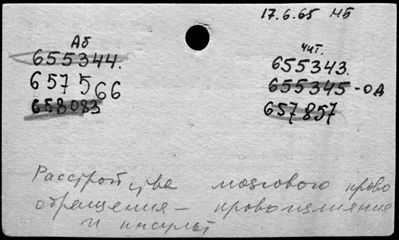 17.6.65 МБ
Аб
655344.
657566
658083
чит.
655343.
655345-ОА
657857
Расстройства мозгового крово
обращения - кровоизлияния
и инсульт